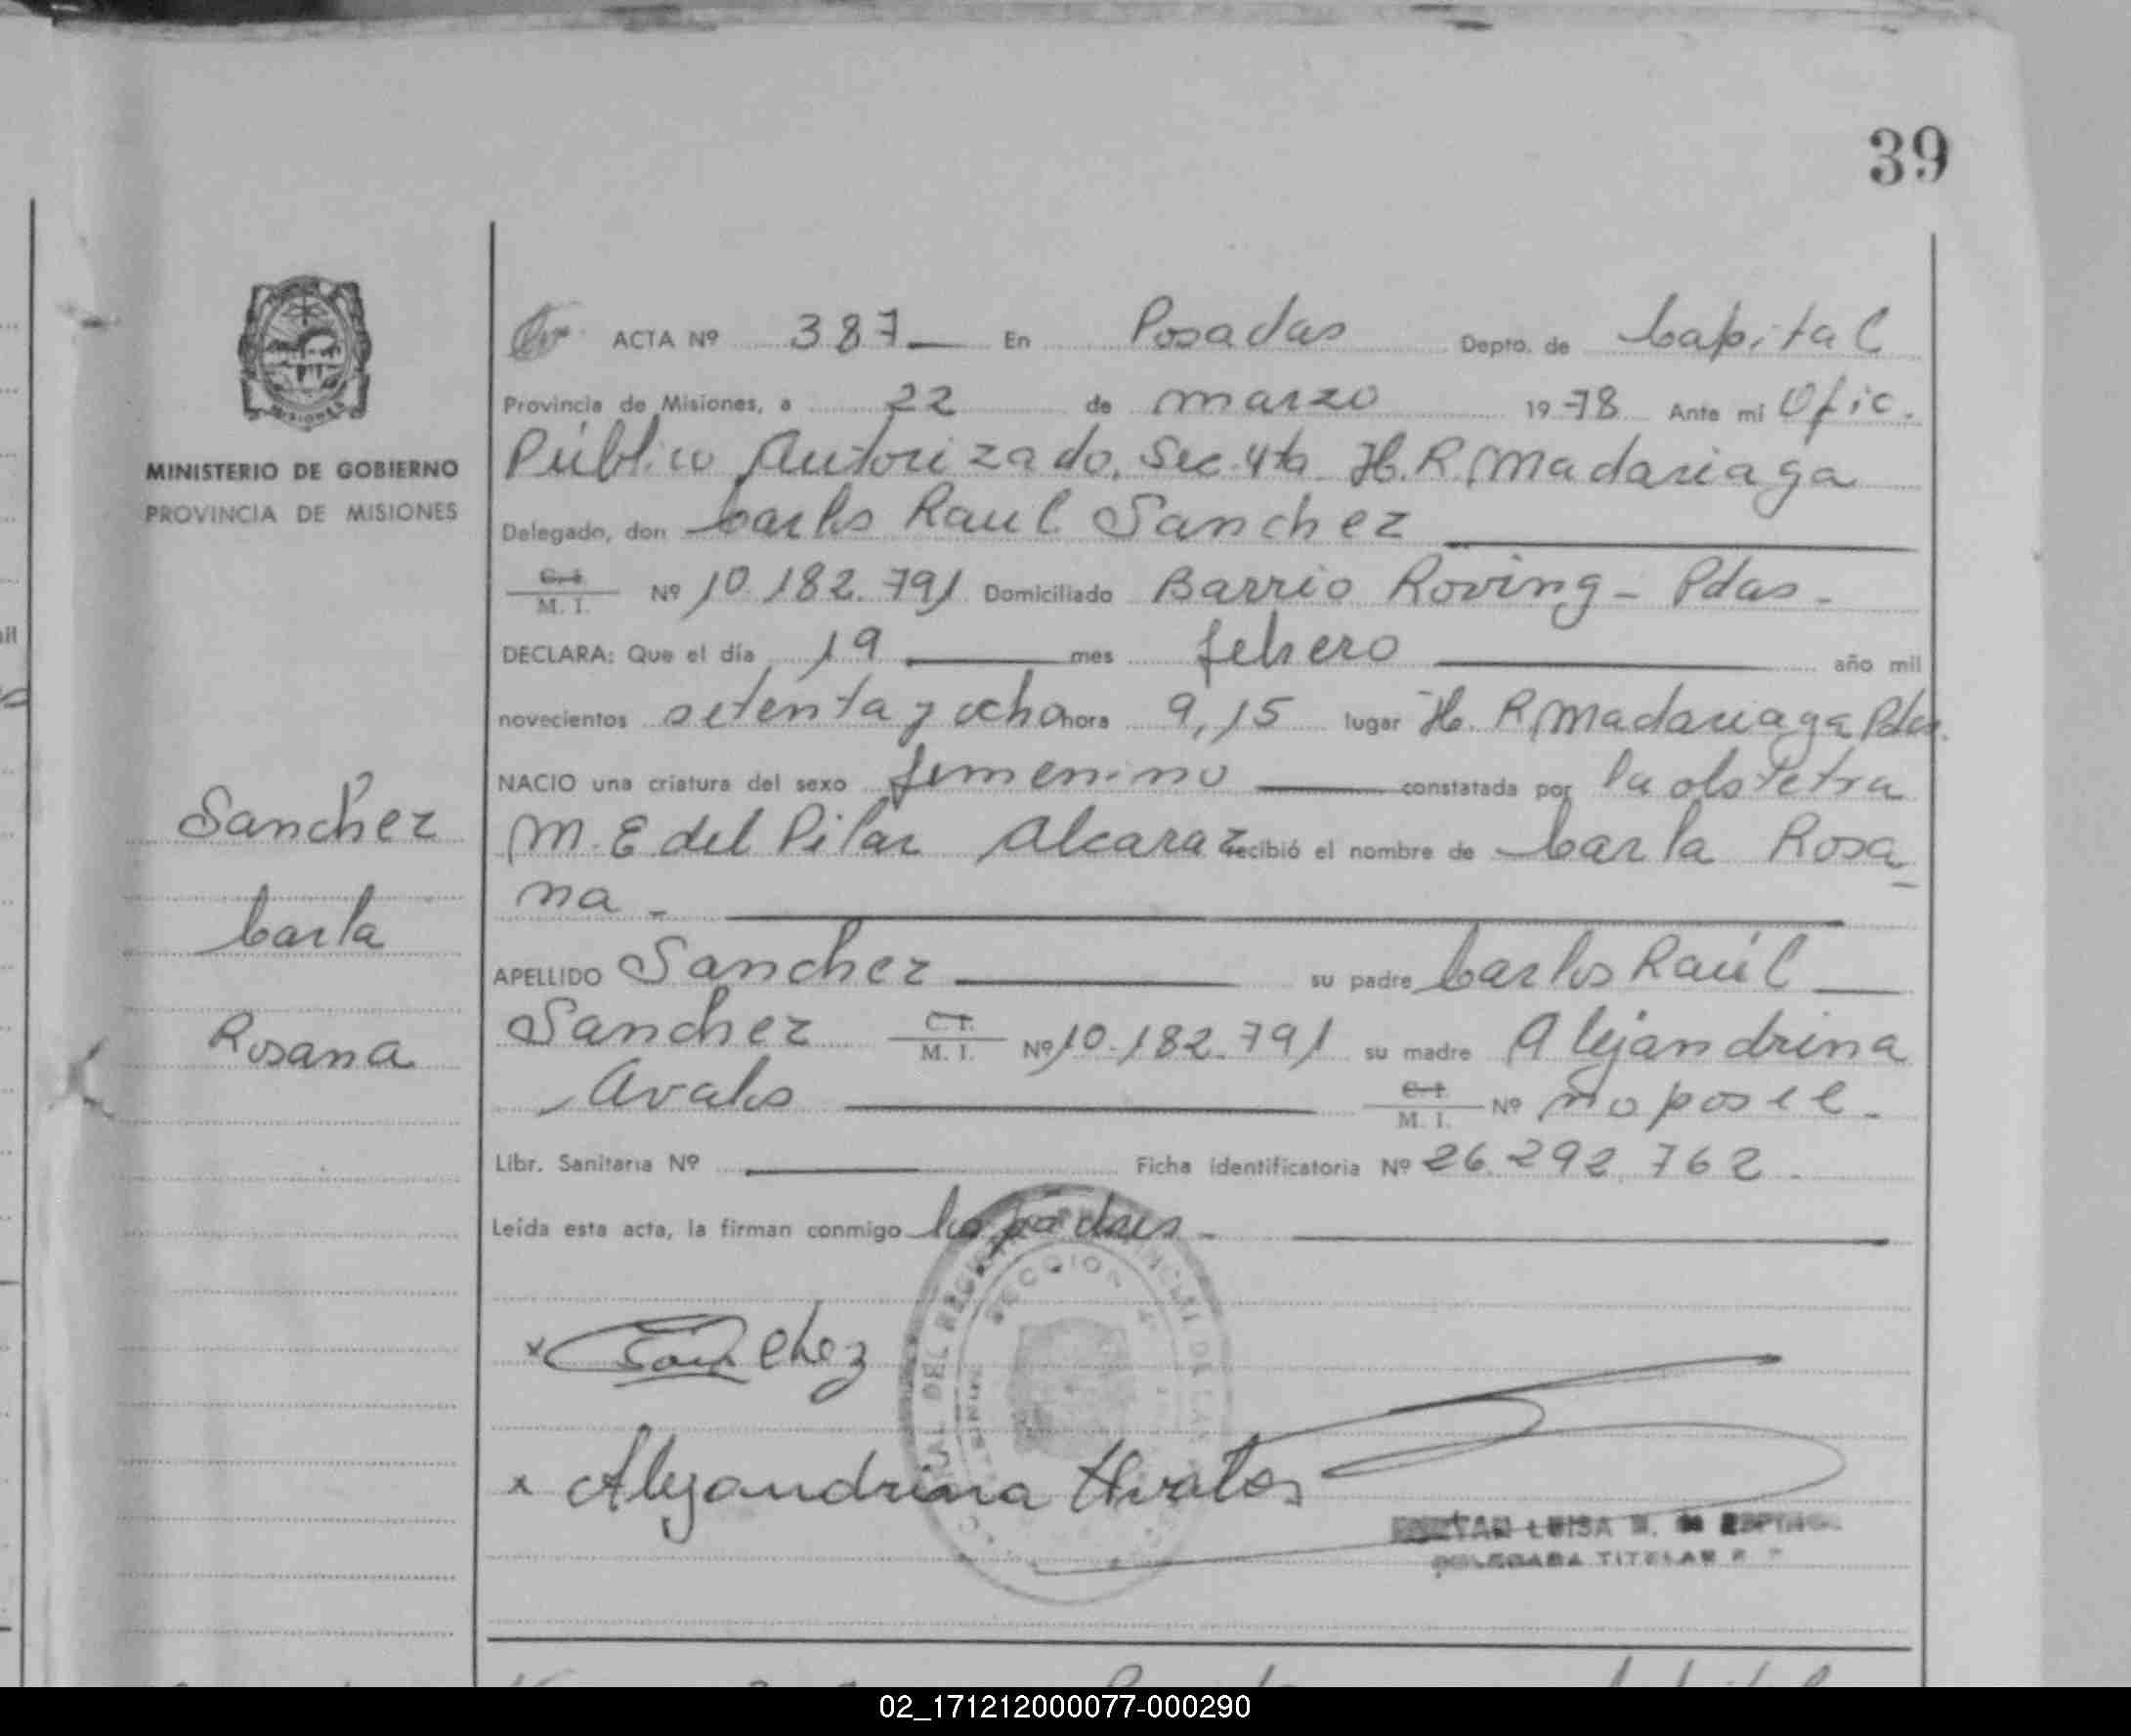 39
ACTA Nº 387 En Posadas Depto. de Capital
Provincia de Misiones, a 22 de marzo 1978 Ante mi Ofic.
Público Autorizado. Sec. 4ta H. R. Madariaga
Delegado, don Carlos Raul Sanchez
C. I. M. I. Nº 10.182.791 Domiciliado Barrio Roving - Pdas.
DECLARA: Que el día 19 mes febrero año mil
novecientos setenta y ocho hora 9,15 lugar H. R. Madariaga Pdas.
NACIO una criatura del sexo femenino constatada por la obstetra
M. E. del Pilar Alcaraz recibió el nombre de Carla Rosa
na.
APELLIDO Sanchez su padre Carlos Raúl
Sanchez C. I. M. I. Nº 10.182.791 su madre Alejandrina
Avalos C. I. M. I. Nº no posee.
Libr. Sanitaria Nº Ficha identificatoria Nº 26.292.762.
Leída esta acta, la firman conmigo los padres.
x Sanchez
x Alejandrina Avalos
LUISA
TITULAR
SECCION
MISIONES
MINISTERIO DE GOBIERNO
PROVINCIA DE MISIONES
Sanchez
Carla
Rosana
02_171212000077-000290